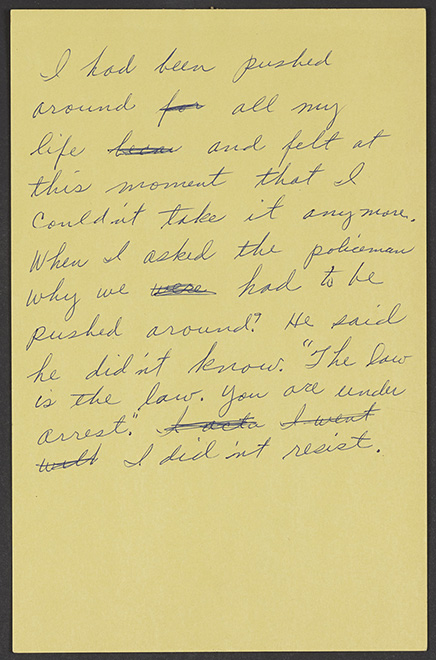 I had been pushed
around for all my
life becau and felt at
this moment that I
couldn't take it anymore.
When I asked the policeman
why we were had to be
pushed around? He said
he didn't know. "The law
is the law. You are under
arrest." I went
I didn't resist.